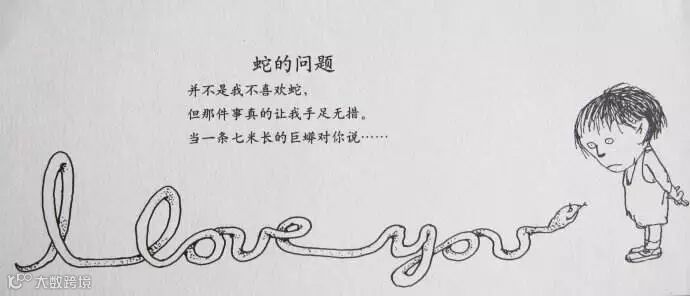 蛇的问题
并不是我不喜欢蛇，
但那件事真的让我手足无措。
当一条七米长的巨蟒对你说……
I love you
大数跨境